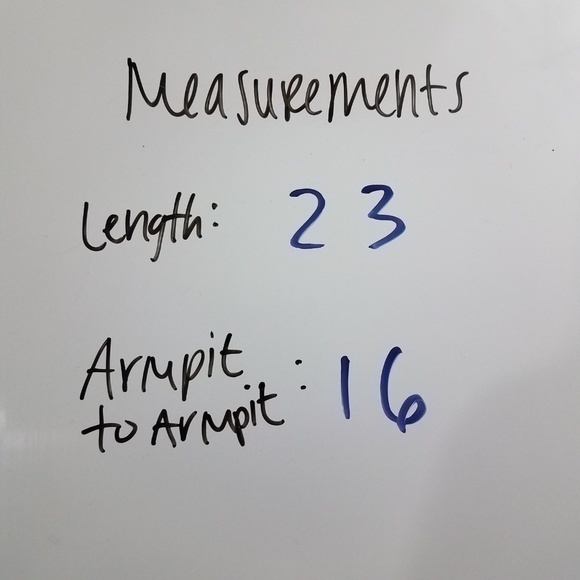 Measurements
Length: 23
Armpit
to Armpit: 16